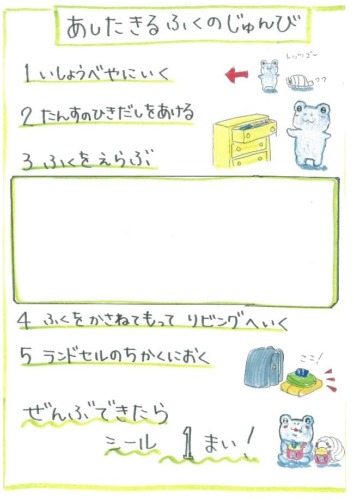 あしたきるふくのじゅんび
レッツゴー
1 いしょうべやにいく
2 たんすのひきだしをあける
3 ふくをえらぶ
4 ふくをかさねてもって リビングへいく
5 ランドセルのちかくにおく
ここ!
ぜんぶできたら
シール 1まい!